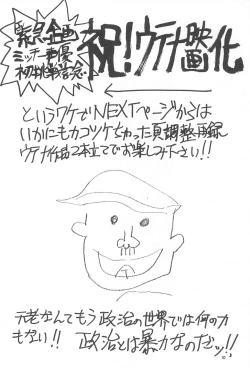 緊急企画
ミッチー声優
初挑戦記念
祝!ウテナ映画化
というワケでNEXTページからは
いかにもカコツケちゃった真調整再録
ウテナ作品2本立てでお楽しみ下さい!!
元老なんてもう政治の世界では何の力
もない!! 政治とは暴力なのだッ!!